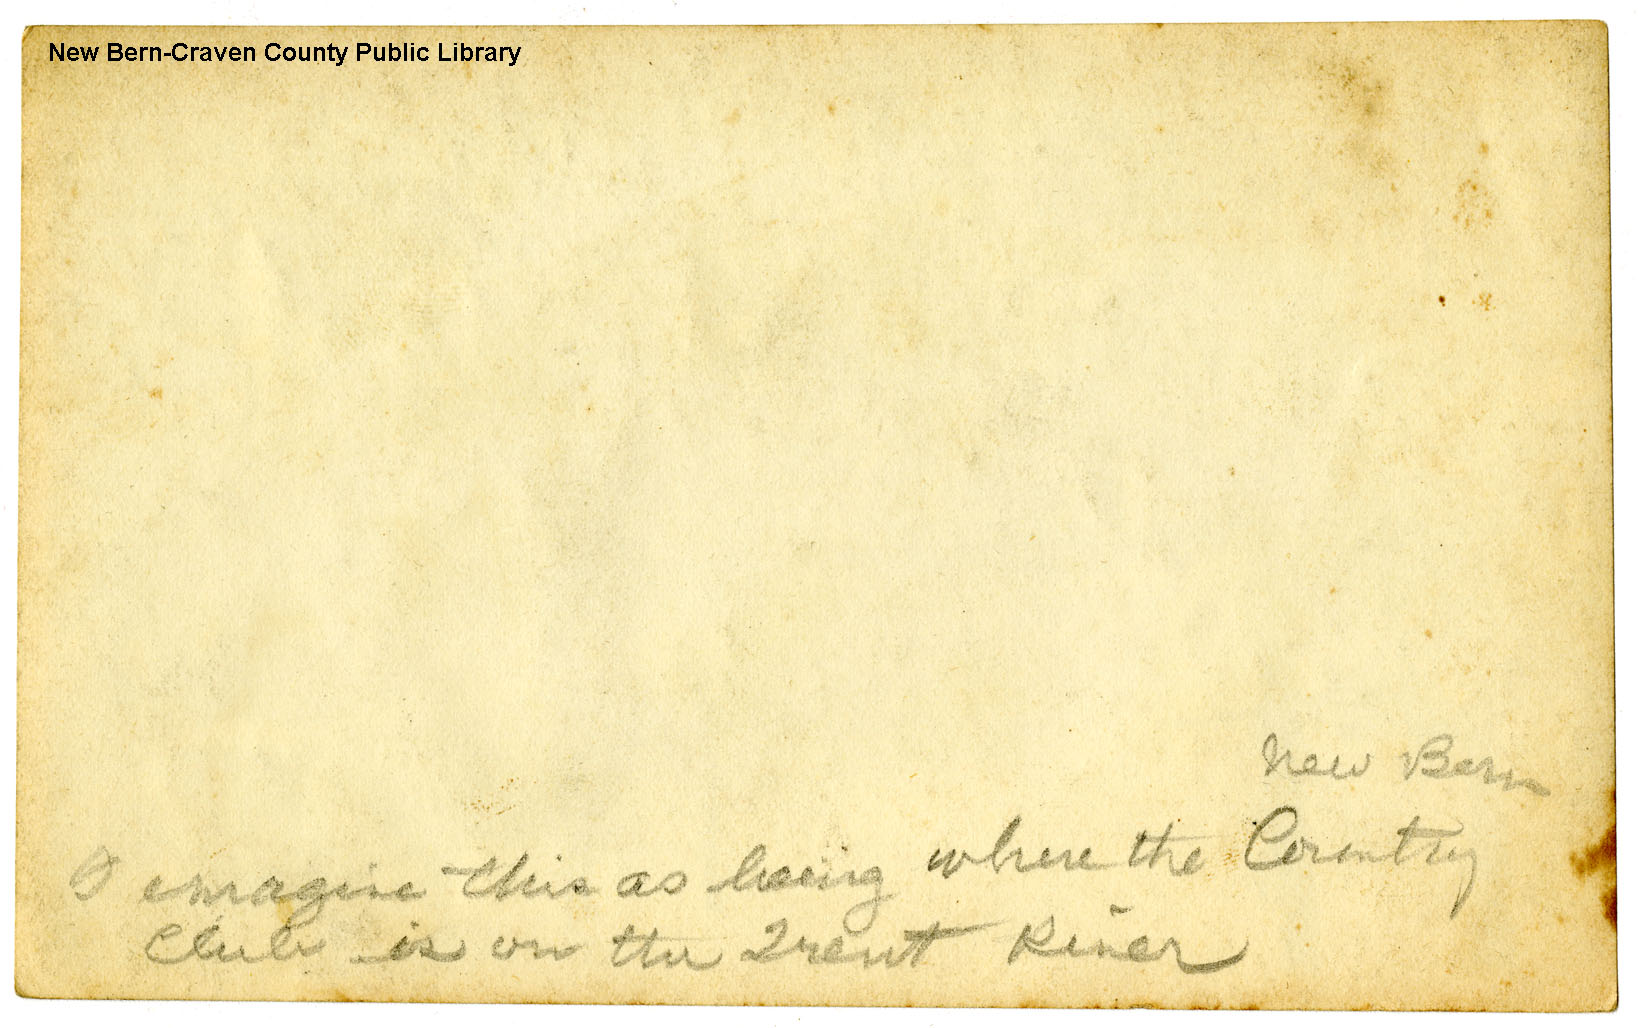 New Bern-Craven County Public Library
New Bern
I imagine this as being where the Country
Club is on the Trent River